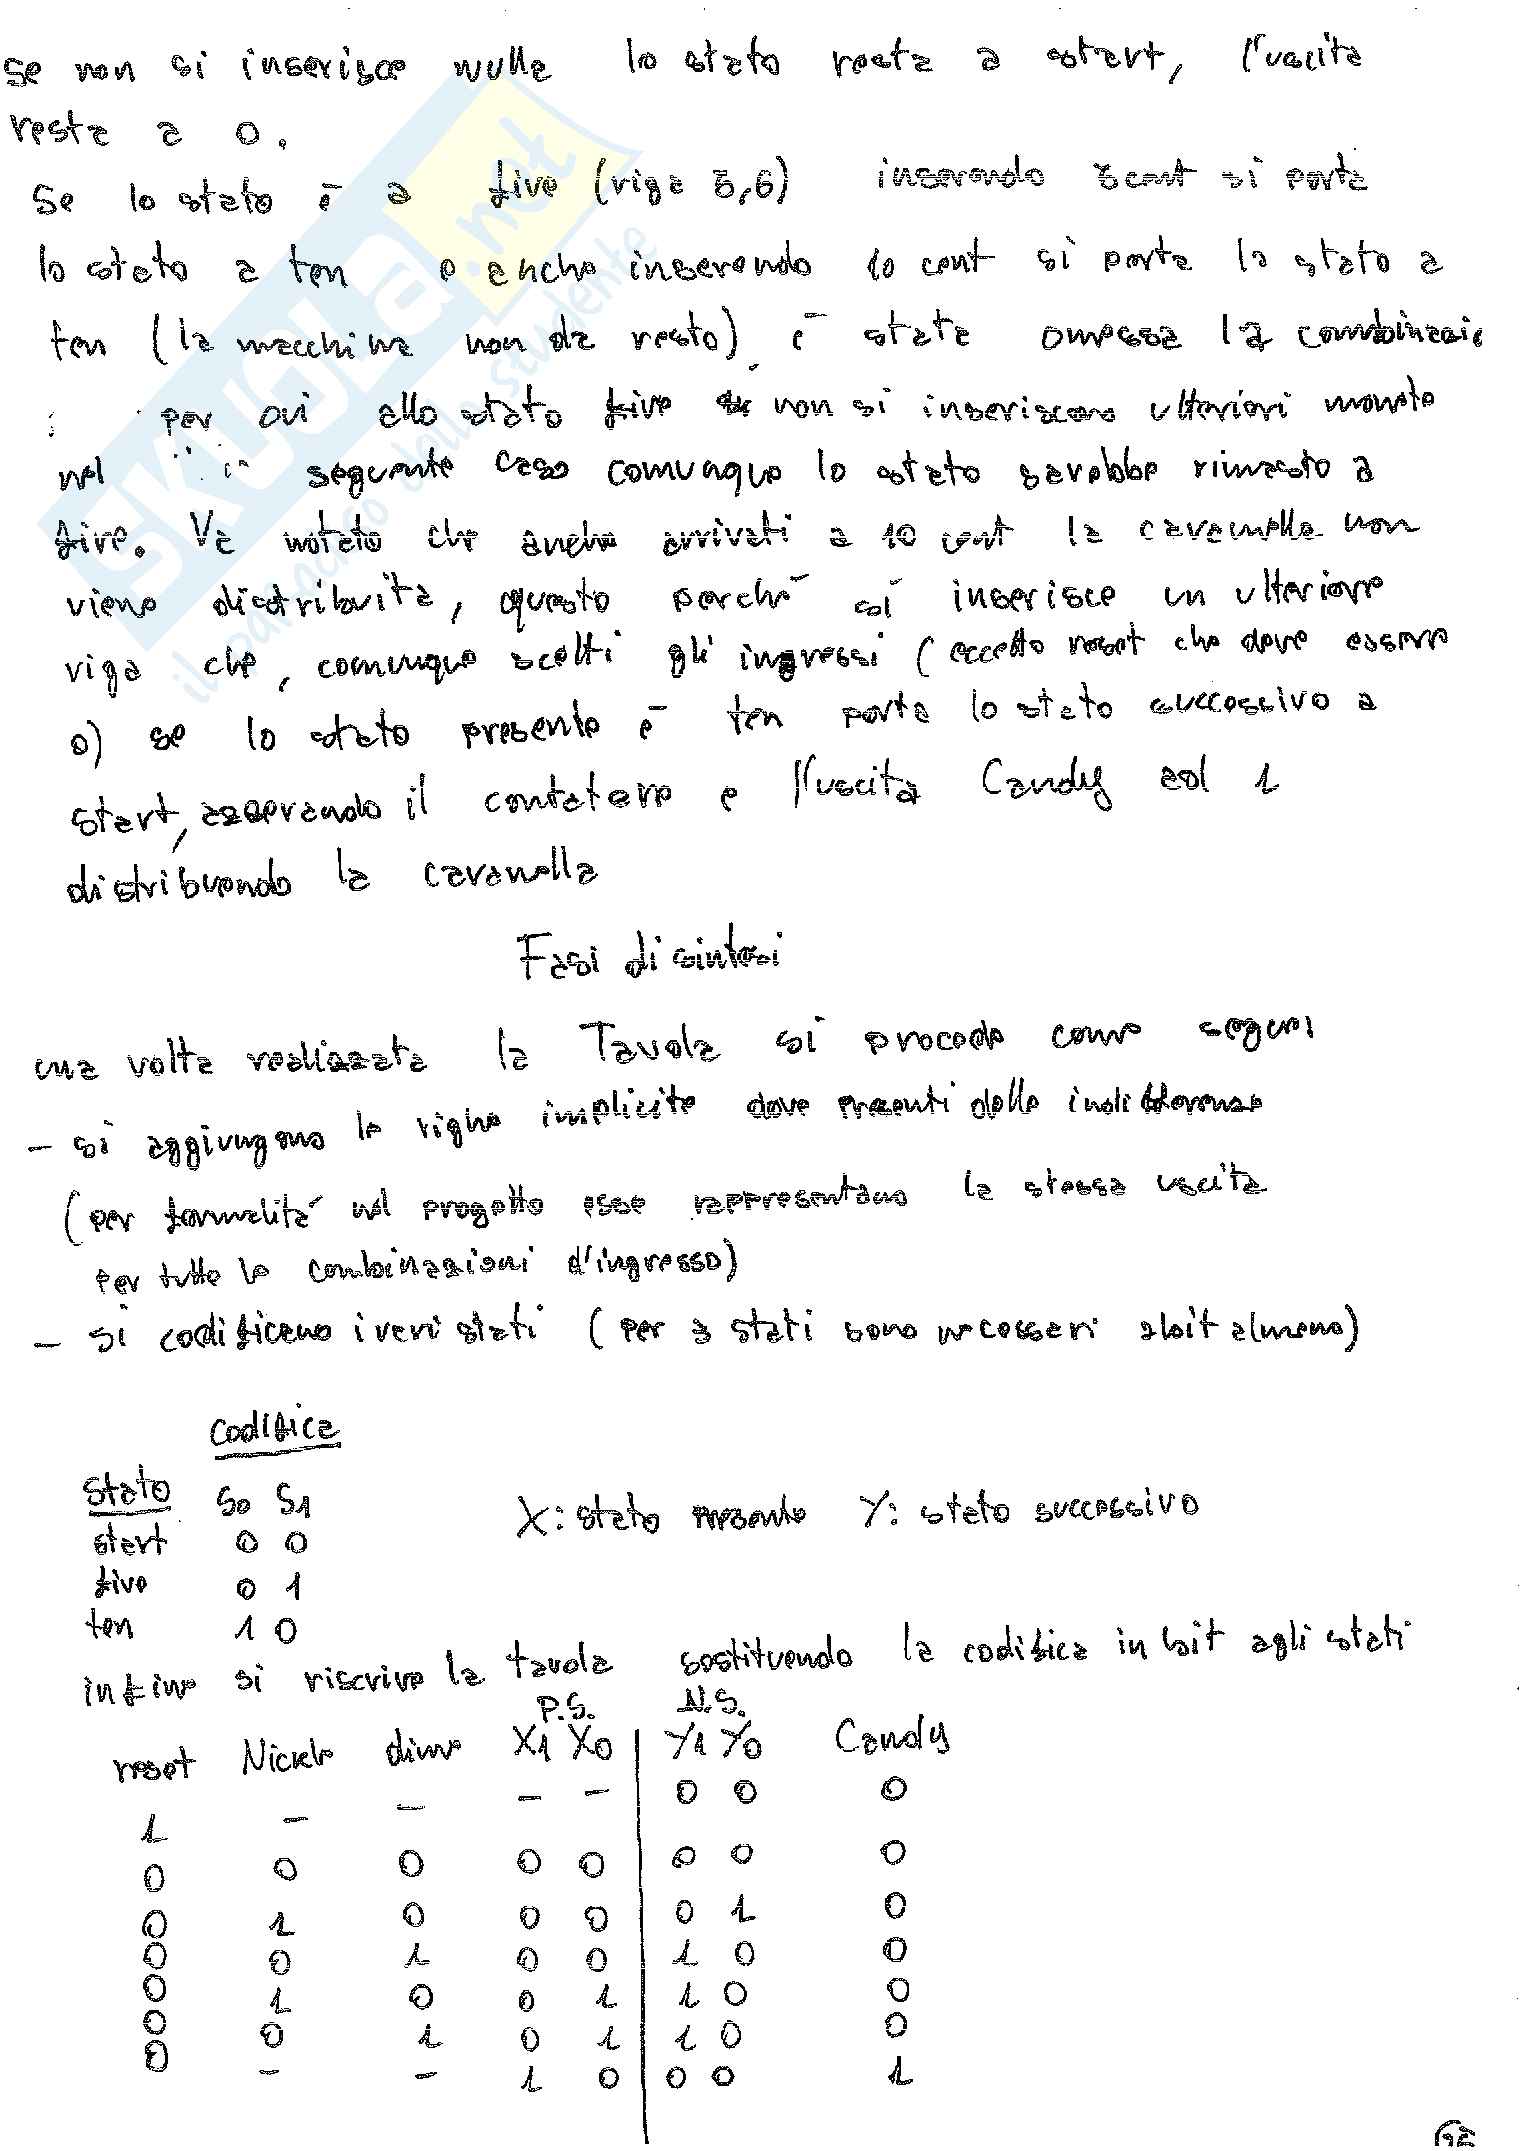 se non si inserisce nulla lo stato resta a start, l'uscita
resta a 0.
Se lo stato è a five (riga 5,6) inserendo 5 cent si porta
lo stato a ten e anche inserendo 10 cent si porta lo stato a
ten (la macchina non da resto) è stata omessa la combinazio
per cui allo stato five non si inseriscono ulteriori monete
nel seguente caso comunque lo stato sarebbe rimasto a
five. Va notato che anche arrivati a 10 cent la caramella non
viene distribuita, questo perché si inserisce un ulteriore
riga che, comunque scelti gli ingressi (eccetto reset che deve essere
0) se lo stato presente è ten porta lo stato successivo a
start, azzerando il contatore e l'uscita Candy ad 1
distribuendo la caramella
Fasi di sintesi
una volta realizzata la Tavola si procede come segue:
- si aggiungono le righe implicite dove presenti delle indifferenze
(per formalità nel progetto esse rappresentano la stessa uscita
per tutte le combinazioni d'ingresso)
- si codificano i veri stati (per 3 stati sono necessari 2 bit almeno)
Codifica
Stato S0 S1
start 0 0
five 0 1
ten 1 0
X: stato presente Y: stato successivo
infine si riscrive la tavola sostituendo la codifica in bit agli stati
P.S. N.S.
reset Nickele dime X1 X0 Y1 Y0 Candy
1 - - - - 0 0 0
0 0 0 0 0 0 0 0
0 1 0 0 0 0 1 0
0 0 1 0 0 1 0 0
0 1 0 0 1 1 0 0
0 0 1 0 1 1 0 0
0 - - 1 0 0 0 1
SKUOLA.net
il paradiso dello studente